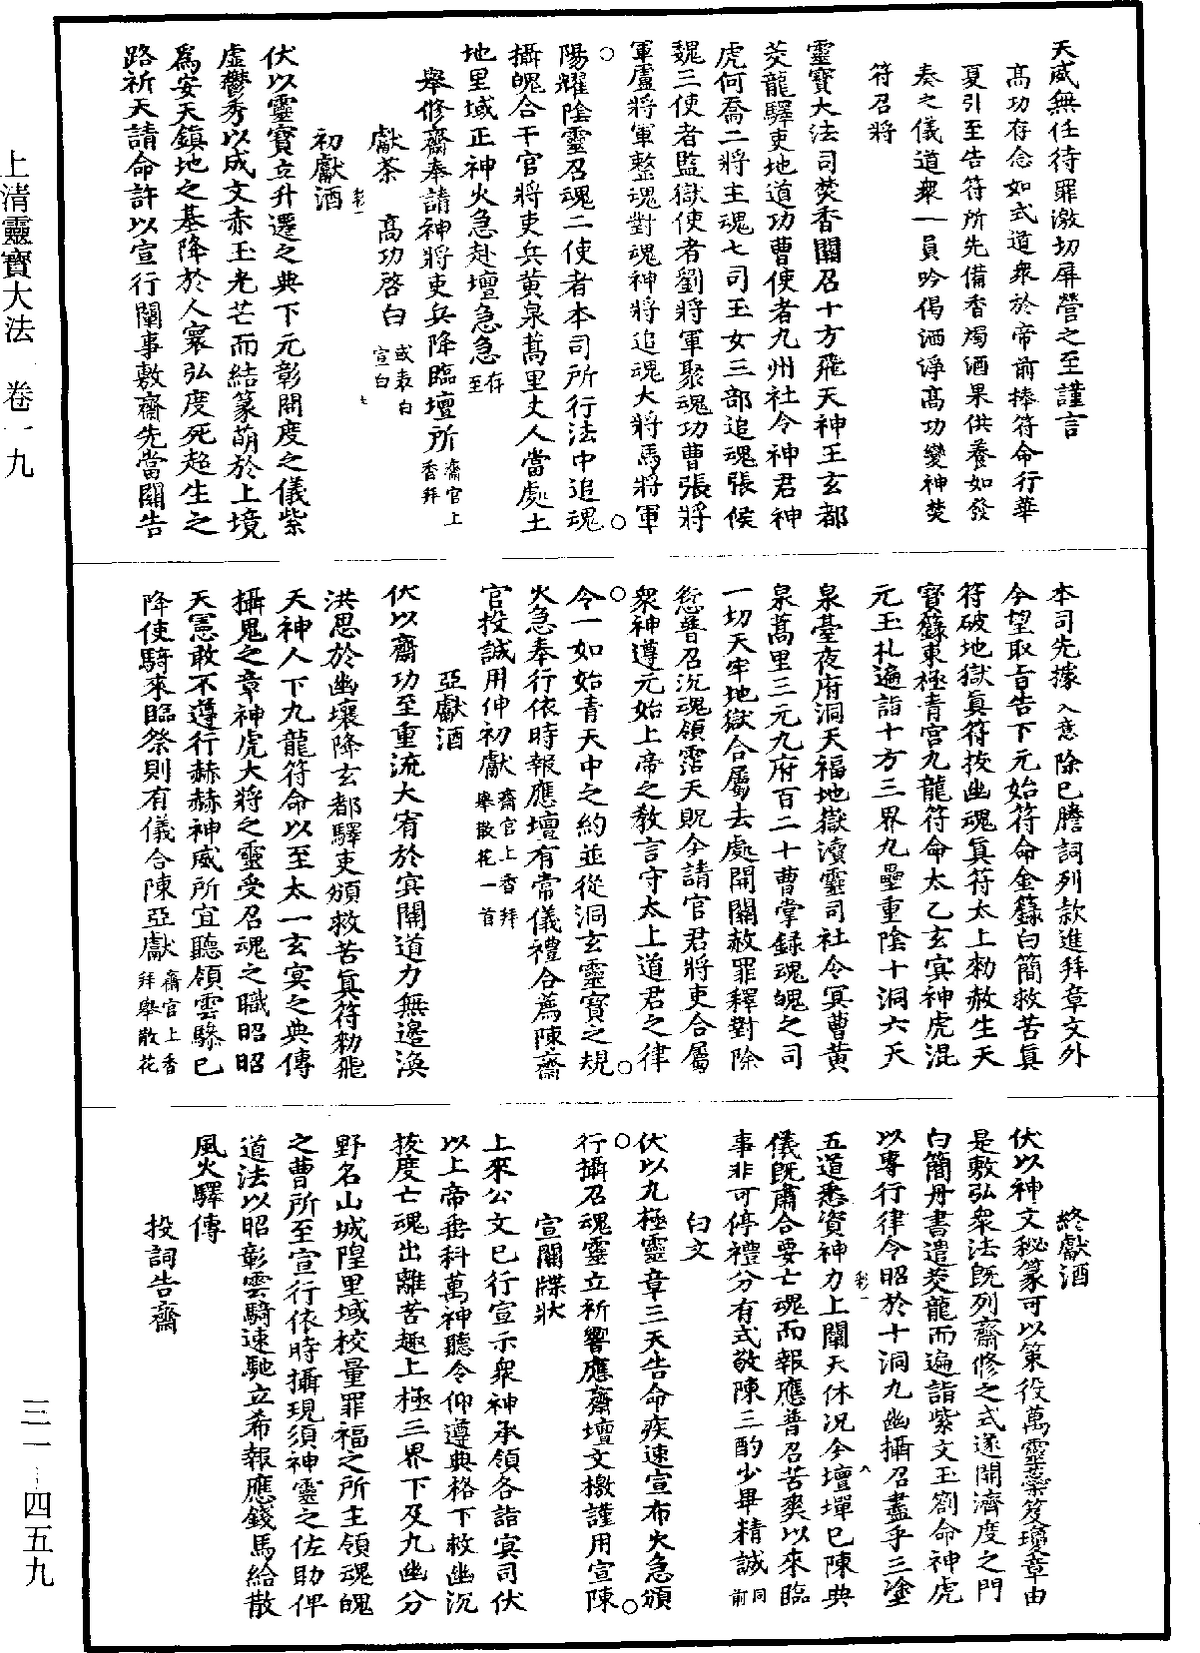 上清靈寶大法　卷一九
三一—四五九
天威無任待罪激切屏營之至謹言
高功存念如式道衆於帝前捧符命行華
夏引至告符所先備香燭酒果供養如發
奏之儀道衆一員吟偈洒淨高功變神焚
符召將
靈寶大法司焚香關召十方飛天神王玄都
茭龍驛吏地道功曹使者九州社令神君神
虎何喬二將主魂七司玉女三部追魂張候
魏三使者監獄使者劉將軍聚魂功曹張將
軍盧將軍整魂對魂神將追魂大將馬將軍
○陽耀陰靈召魂二使者本司所行法中追魂○
攝魄合干官將吏兵黃泉蒿里丈人當處土
地里域正神火急赴壇急急存至
舉修齋奉請神將吏兵降臨壇所齋官上香拜
獻茶　高功啓白或表白宣白
初獻酒
伏以靈寶立升遷之典下元彰開度之儀紫
虛鬱秀以成文赤玉光芒而結篆萌於上境
爲安天鎮地之基降於人寰弘度死超生之
路祈天請命許以宣行關事敷齋先當關告
本司先據入意除已謄詞列款進拜章文外
今望取旨告下元始符命金籙白簡救苦眞
符破地獄眞符拔幽魂眞符太上勑赦生天
寶籙東極青宮九龍符命太乙玄冥神虎混
元玉札遍詣十方三界九壘重陰十洞六天
泉臺夜府洞天福地獄瀆靈司社令冥曹黃
泉蒿里三元九府百二十曹掌錄魂魄之司
一切天牢地獄合屬去處開關赦罪釋對除
愆普召沉魂領霑天貺今請官君將吏合屬
衆神遵元始上帝之教言守太上道君之律
○令一如始青天中之約並從洞玄靈寶之規○
火急奉行依時報應壇有常儀禮合薦陳齋
官投誠用伸初獻齋官上香拜舉散花一首
亞獻酒
伏以齋功至重流大宥於冥關道力無邊渙
洪恩於幽壤降玄都驛吏頒救苦眞符勑飛
天神人下九龍符命以至太一玄冥之典傳
攝鬼之章神虎大將之靈受召魂之職昭昭
天憲敢不遵行赫赫神威所宜聽領雲驂已
降使騎來臨祭則有儀合陳亞獻齋官上香拜舉散花
終獻酒
伏以神文秘篆可以策役萬靈蘂笈瓊章由
是敷弘衆法旣列齋修之式遂開濟度之門
白簡丹書遣茭龍而遍詣紫文玉劄命神虎
以專行律令昭於十洞九幽攝召盡乎三塗
五道悉資神力上闡天休況今壇墠已陳典
儀旣肅合要亡魂而報應普召苦爽以來臨
事非可停禮分有式敬陳三酌少畢精誠同前
白文
伏以九極靈章三天告命疾速宣布火急頒
○行攝召魂靈立祈響應齋壇文檄謹用宣陳○
宣關牒狀
上來公文已行宣示衆神承領各詣冥司伏
以上帝垂科萬神聽令仰遵典格下救幽沉
拔度亡魂出離苦趣上極三界下及九幽分
野名山城隍里域校量罪福之所主領魂魄
之曹所至宣行依時攝現須神靈之佐助俾
道法以昭彰雲騎速馳立希報應錢馬給散
風火驛傳
投詞告齋